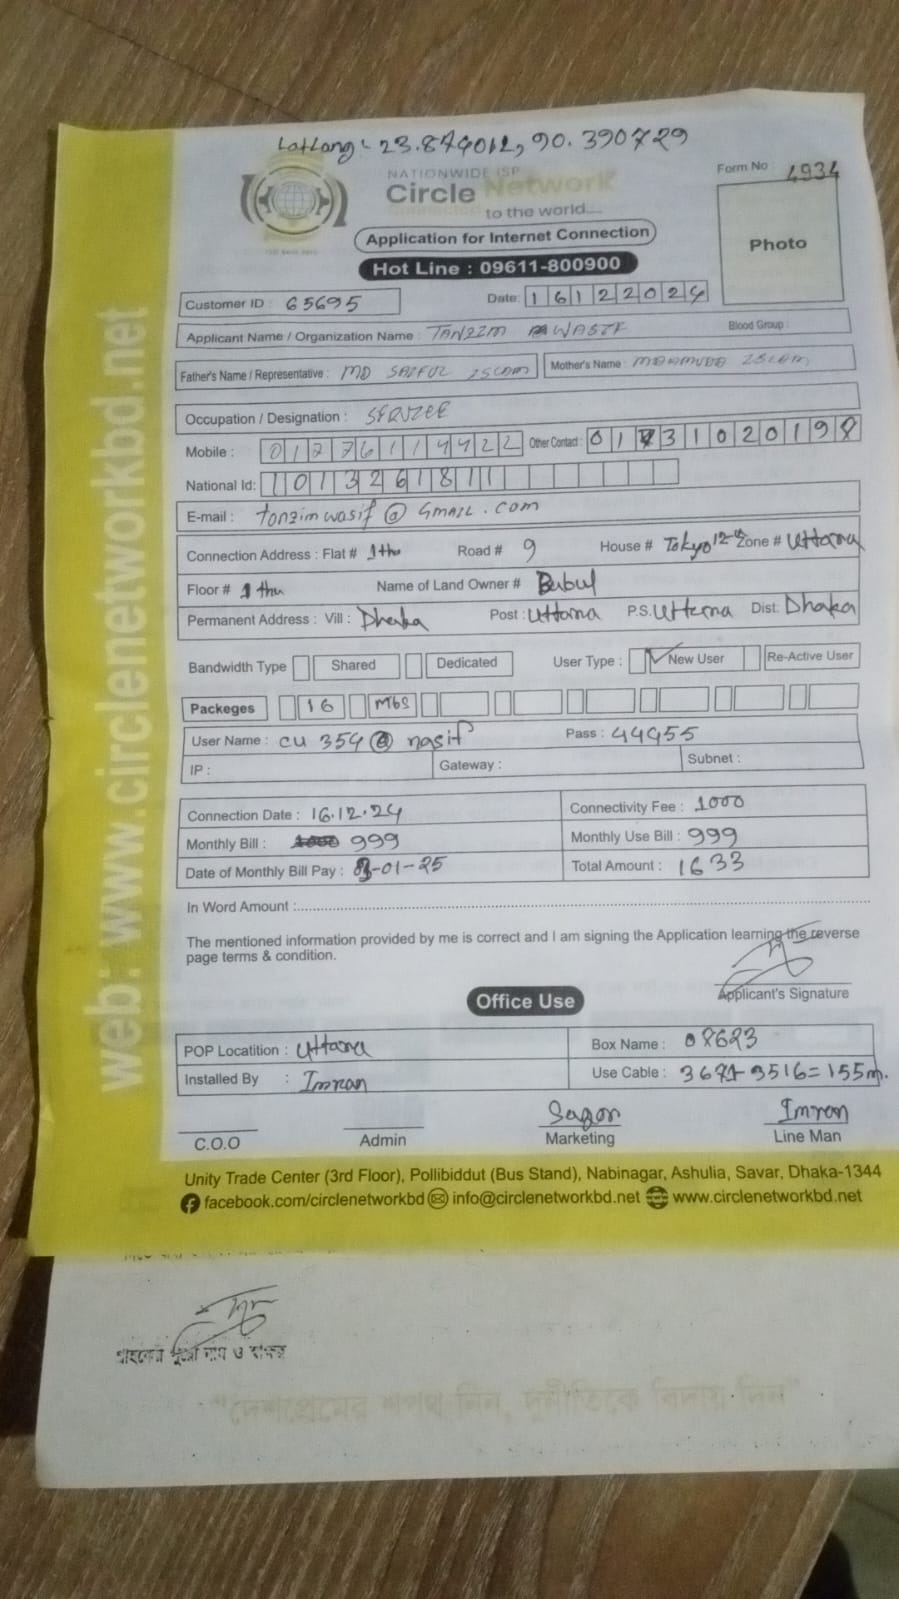 LatLong: 23.874012, 90.390729
NATIONWIDE ISP
Circle Network
to the world....
Form No : 4934
Application for Internet Connection
Photo
Hot Line : 09611-800900
Customer ID : 65695
Date: 16122024
Applicant Name / Organization Name : TANZIM WASIF
Blood Group :
Father's Name / Representative : MD SAIFUL ISLAM
Mother's Name : MAHMUDA ISLAM
Occupation / Designation :
Mobile : 01776114422
Other Contact : 01731020198
National Id: 1013261811
E-mail : tanzimwasif@GMAIL.com
Connection Address : Flat # Road # 9 House # Tokyo 12 Zone # Uttara
Floor # Name of Land Owner # Babul
Permanent Address : Vill : Dhaka Post : Uttara P.S. Uttara Dist. Dhaka
Bandwidth Type Shared Dedicated User Type : New User Re-Active User
Packeges 16 Mbs
User Name : cu 354 @ nasif Pass : 44955
IP : Gateway : Subnet :
Connection Date : 16.12.24 Connectivity Fee : 1000
Monthly Bill : 999 Monthly Use Bill : 999
Date of Monthly Bill Pay : -01-25 Total Amount : 1633
In Word Amount :
The mentioned information provided by me is correct and I am signing the Application learning the reverse
page terms & condition.
Applicant's Signature
Office Use
POP Locatition : Uttara Box Name : 08623
Installed By : Imran Use Cable : 3671-3516=155m.
Sagor Imran
C.O.O Admin Marketing Line Man
Unity Trade Center (3rd Floor), Pollibiddut (Bus Stand), Nabinagar, Ashulia, Savar, Dhaka-1344
facebook.com/circlenetworkbd info@circlenetworkbd.net www.circlenetworkbd.net
web: www.circlenetworkbd.net
গ্রাহকের পুরো নাম ও স্বাক্ষর
"দেশপ্রেমের শপথ নিন, দুর্নীতিকে বিদায় দিন"